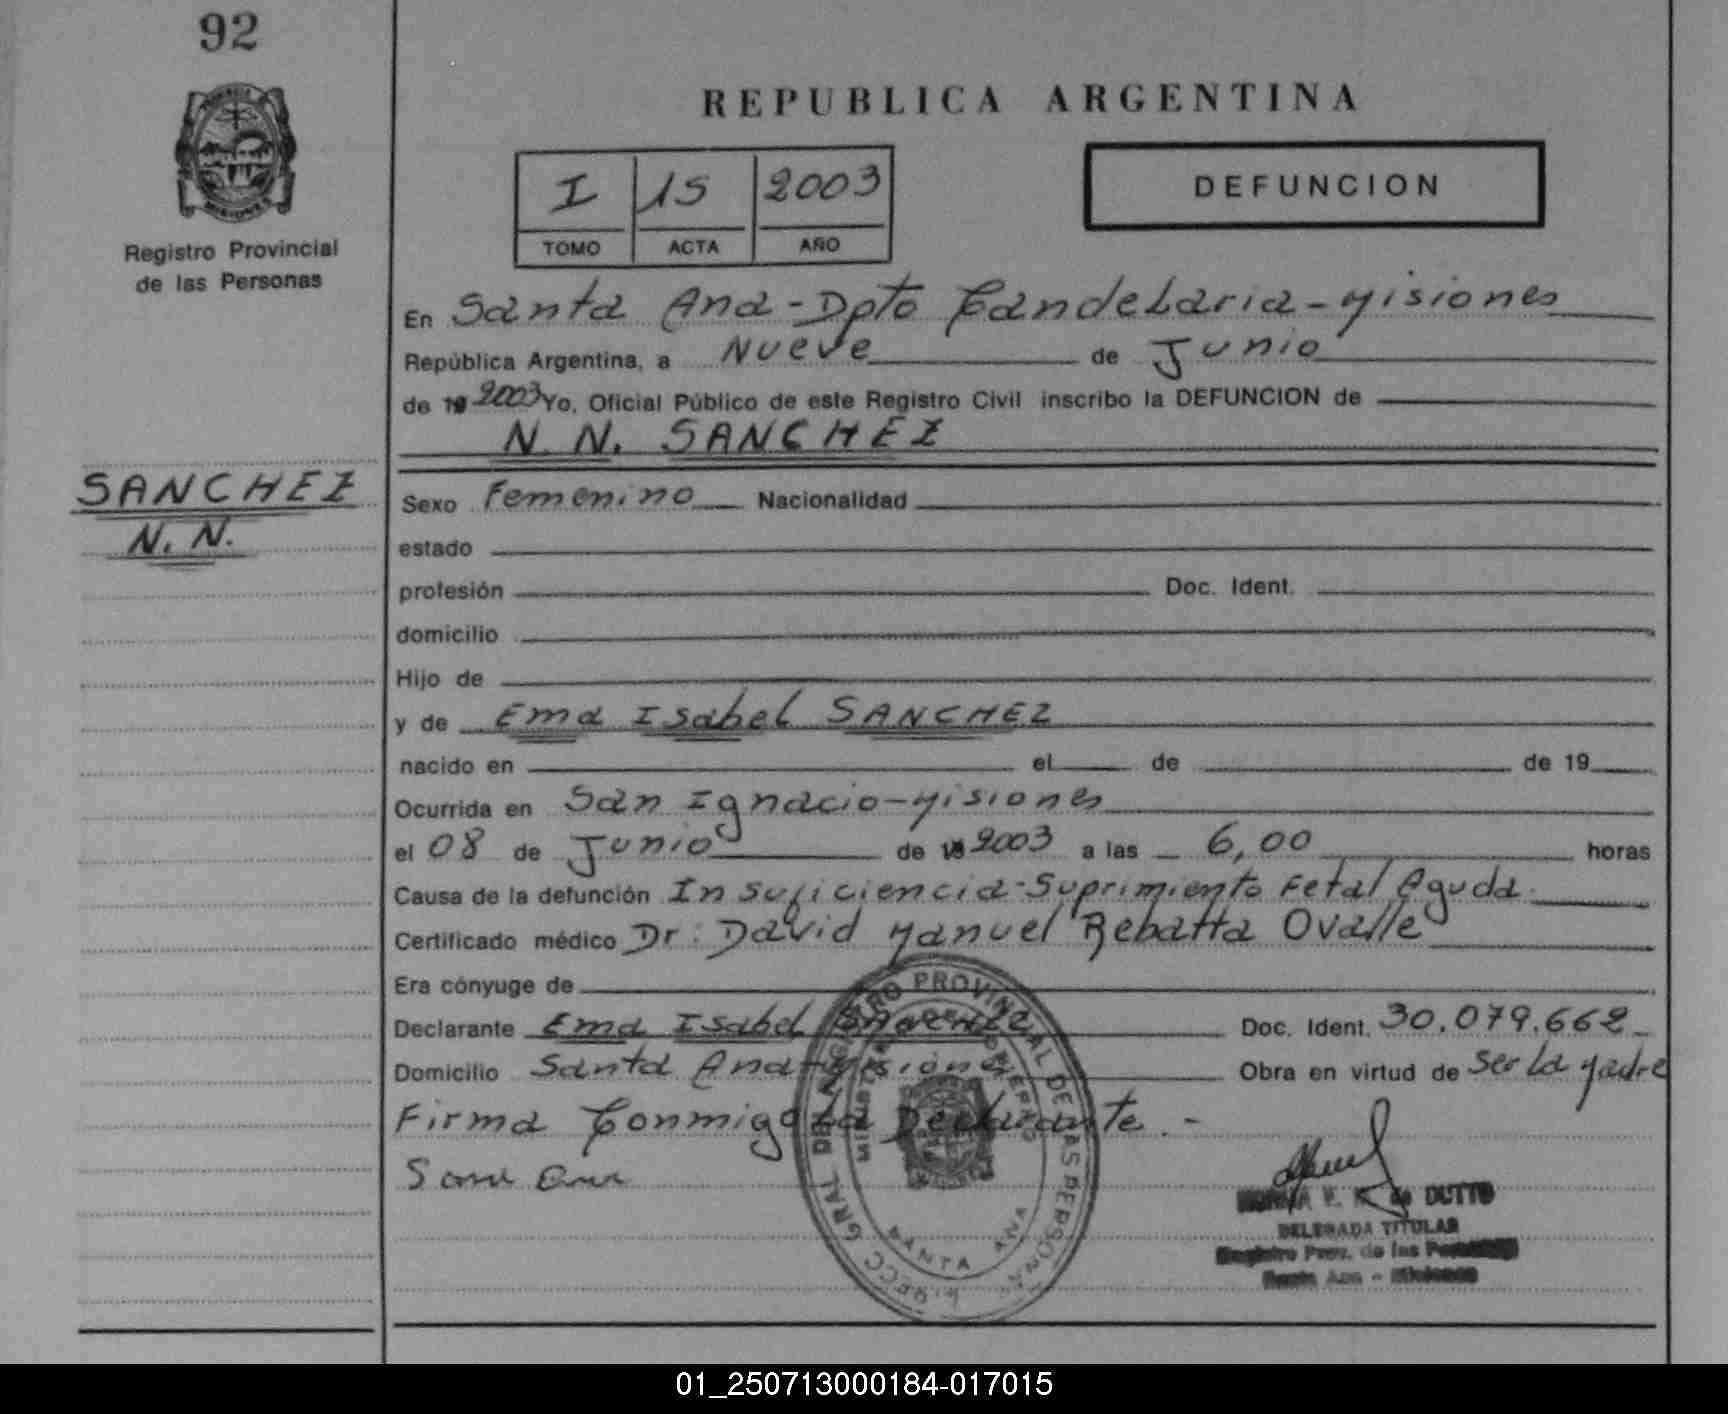 92
REPUBLICA ARGENTINA
I 15 2003
TOMO ACTA AÑO
DEFUNCION
MISIONES
Registro Provincial
de las Personas
En Santa Ana - Dpto Candelaria - Misiones
República Argentina, a Nueve de Junio
de 19 2003 Yo, Oficial Público de este Registro Civil inscribo la DEFUNCION de
N. N. SANCHEZ
SANCHEZ
N. N.
Sexo Femenino Nacionalidad
estado
profesión Doc. Ident.
domicilio
Hijo de
y de Ema Isabel SANCHEZ
nacido en el de de 19
Ocurrida en San Ignacio - Misiones
el 08 de Junio de 19 2003 a las 6,00 horas
Causa de la defunción Insuficiencia - Suprimiento Fetal Aguda
Certificado médico Dr: David Manuel Rebatta Ovalle
Era cónyuge de
Declarante Ema Isabel Sanchez Doc. Ident. 30.079.662
Domicilio Santa Ana - Misiones Obra en virtud de Ser La Madre
Firma Conmigo La Declarante . -
V. K. de DUTTO
DELEGADA TITULAR
Registro Prov. de las Personas
Santa Ana - Misiones
PROVINCIAL DE LAS PERSONAS
SANTA ANA
01_250713000184-017015